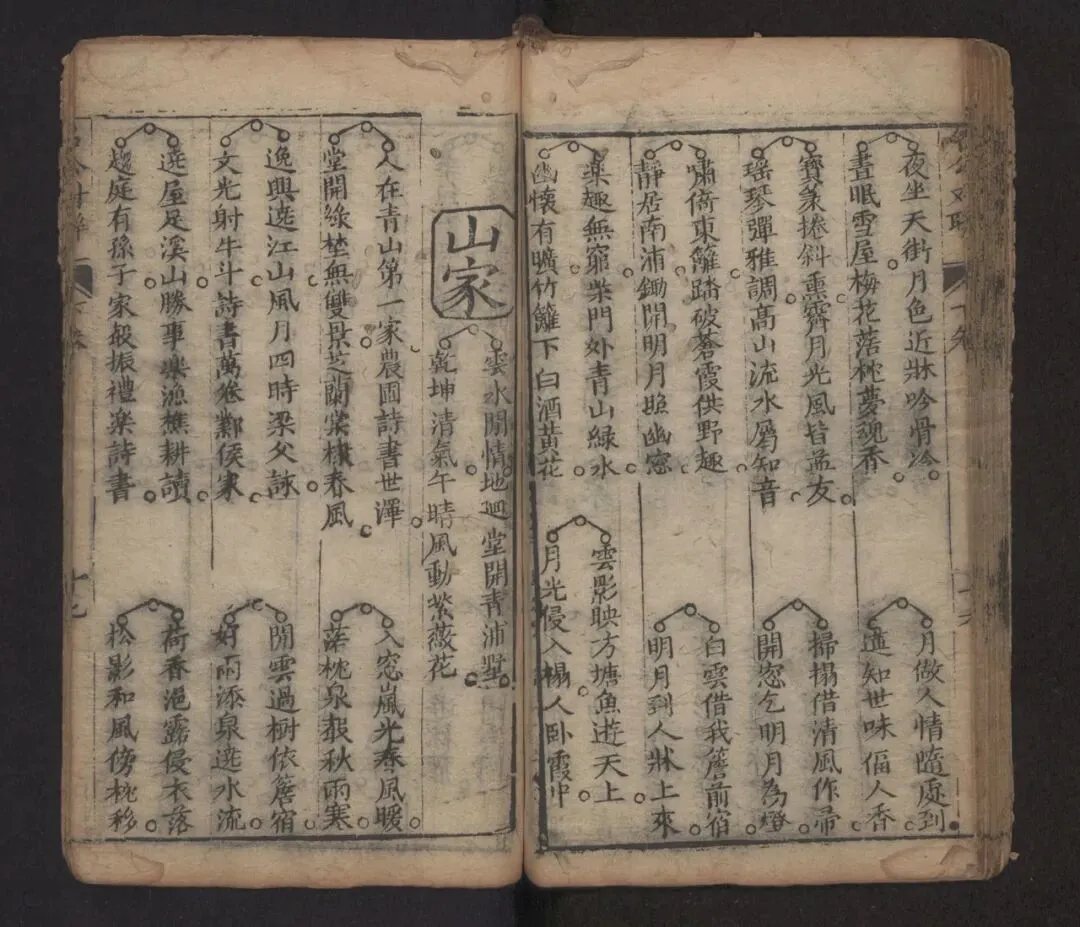 夜坐天街月色近牀吟骨冷
晝眠雪屋梅花落枕夢魂香
月做人情隨處到
進知世味偪人香
寶篆捲斜熏霽月光風皆益友
瑶琴彈雅調高山流水屬知音
掃榻借清風作帚
開窓乞明月為燈
嘯倚東籬踏破蒼霞供野趣
靜居南浦鋤開明月照幽窓
白雲借我簷前宿
明月到人牀上來
藥趣無窮柴門外青山緑水
幽懷有曠竹籬下白酒黃花
雲影映方塘魚遊天上
月光侵入榻人卧霞中
山家
雲水閒情地廻堂開青浦墅
乾坤清氣午晴風動紫薇花
人在青山第一家農圃詩書世澤
堂開綠埜無雙景芝蘭棠棣春風
入窓嵐光春風暖
落枕泉聲秋雨寒
逸興遶江山風月四時梁父詠
文光射牛斗詩書萬卷鄴侯家
閒雲過樹依簷宿
好雨添泉遶水流
遶屋足溪山勝事樂漁樵耕讀
趨庭有孫子家聲振禮樂詩書
荷香浥露侵衣落
松影和風傍枕移